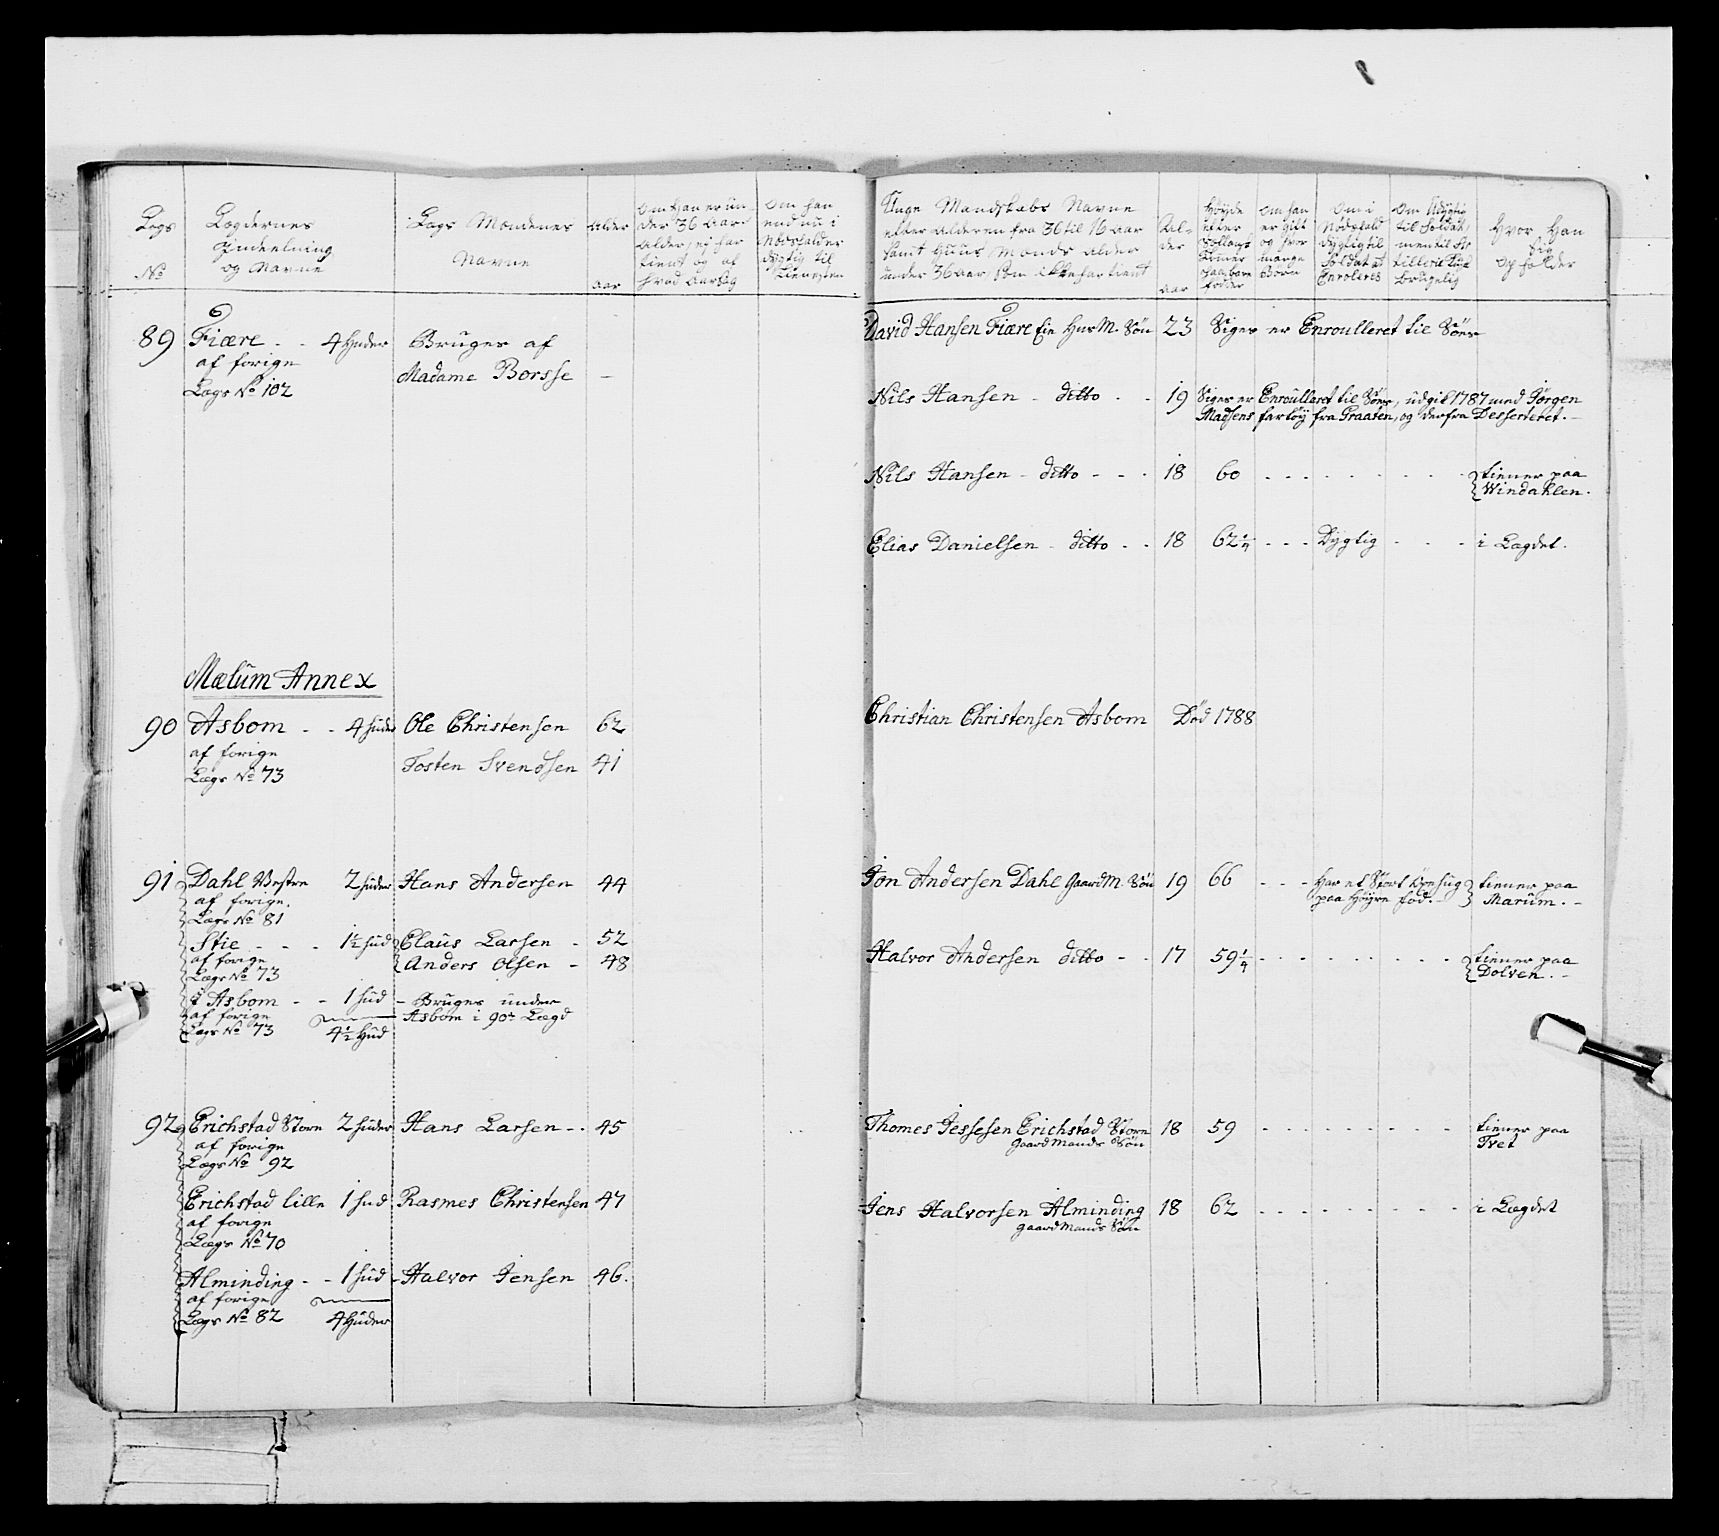 Legs
No
Lægdernes
Jndeelning
og Navne
Lægs Mændenes
Navne
Alder
aar
Om Han er un-
der 36 Aar
Alder, ej har
tient og af
hvad Aarsag
Om han
end nu i
Nødsfalder
dygtig til
Tienesten
Unge Mandskabs Navne
efter Alderen fra 36 til 16 aar
samt Huus Mænds alder
under 36 aar, som ikke har tient
Al-
der
aar
Høyde
efter
fodder
Om han
er gift
og hvor
mange
Børn
Om i
Nødsfald
dygtig til
Soldat at
Enroleres
Om Udygtig
til Soldat,
men til Ar
tillerie Tiæ
brugelig
Hvor Han
sig
Opholder
89 Fiære - - 4 Huder Bruges af
af forige Madame Borsse —
Lægs No 102
David Hansen Fiære Ein HusM. Søn 23 Siges er Enroulleret til Søes
Nils Hansen - ditto - - 19 Siges er Enroulleret til Søes, udgik 1787 med Jørgen
Madsens fartøy fra Graaten, og derfra Desserteret. -
Nils Hansen - ditto - - - 18 60 - - - - - - - tiener paa
Windahlen.
Elias Danielsen - ditto - - 18 62 1/4 - - - Dygtig - - - i Lægdet.
Mælum Annex
90 Asbom - - 4 huder Ole Christensen 62
af forige Tosten Svendsen 41
Lægs No 73
Christian Christensen Asbom Død 1788
91 Dahl Vestre 2 huder Hans Andersen 44
af forige.
Lægs No 81
Stie - - - 1½ hud Claus Larsen - 52
af forige Anders Olsen - 48
Lægs No 73
i Asbom - - 1 hud - Bruges under
af forige Asbom i 90de Lægd
Lægs No 73 4½ Hud
Jon Andersen Dahl GaardM. Søn 19 66 - - - Har et Stort
paa Høyre fod. - tiener paa
Marum. -
Halvor Andersen ditto - - 17 59¼ - - - - - - - tiener paa
Dolven. -
92 Erichstad Store 2 huder Hans Larsen - - 45
af forige
Lægs No 92
Erichstad lille 1 hud Rasmes Christensen 47
af forige
Lægs No 70
Alminding - - 1 hud - Halvor Jensen 46.
af forige
Lægs No 82 4 Huder
Thomes Jessesen Erichstad Store 18 59 - - - - - - - tiener paa
Gaard Mands Søn Tvet
Jens Halvorsen Alminding 18 62 - - - - - - - i Lægdet
Gaard Mands Søn